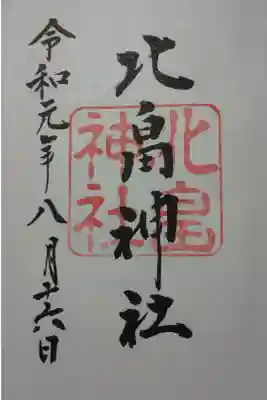 北畠神社
北畠
神社
令和元年八月十六日